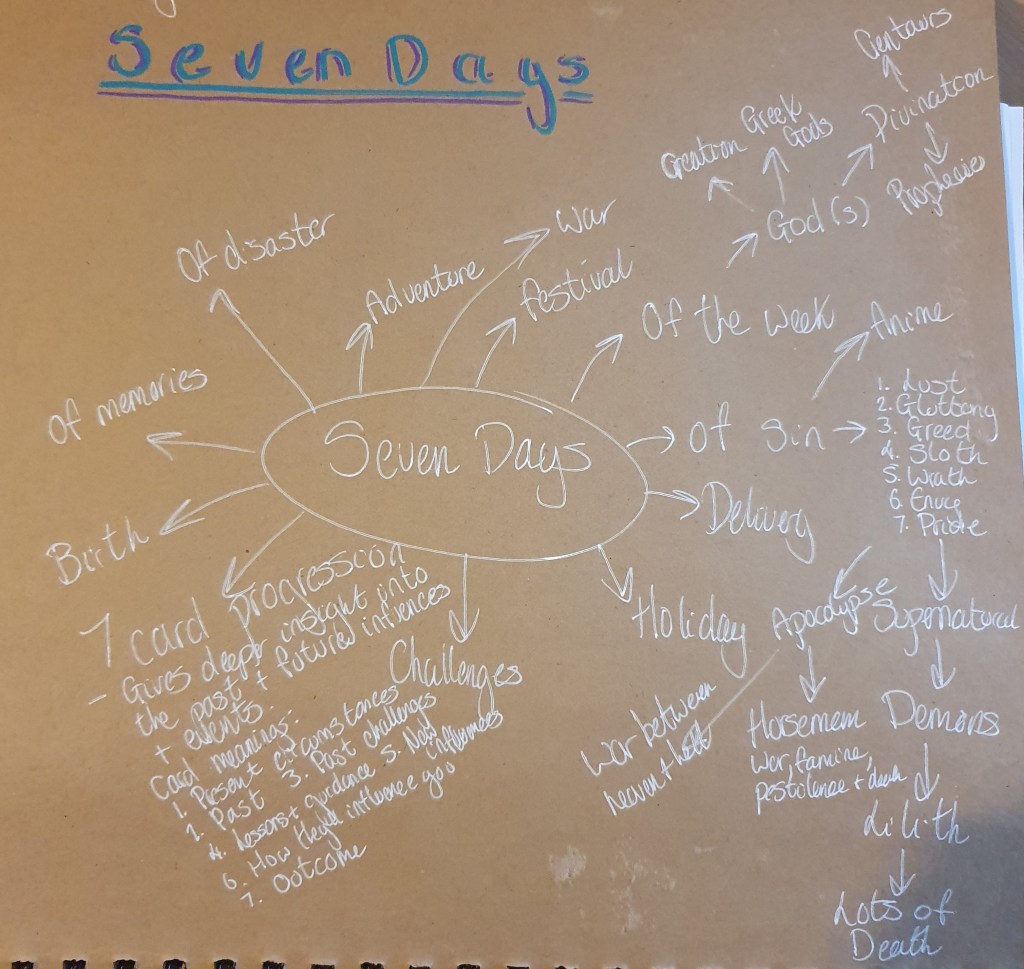 Seven Days
Centaurs
Divination
Prophecie
Greek
Gods
Creation
God(s)
War
Of disaster
Adventure
festival
Of the week
Anime
Of memories
Seven Days
Of Sin
1. Lust
2. Gluttony
3. Greed
4. Sloth
5. Wrath
6. Envy
7. Pride
Delivery
Birth
7 card progression
- Gives deeper insight into
the past + future influences
+ events.
Card meanings:
1. Present circumstances
2. Past 3. Past challenges
4. Lessons + guidance 5. New
influences
6. How they'll influence you
7. Outcome
Challenges
Holiday
Apocalypse
Supernatural
War between
heaven + hell
Horsemen
War, famine,
pestilence + death
Demons
Lilith
Lots of
Death